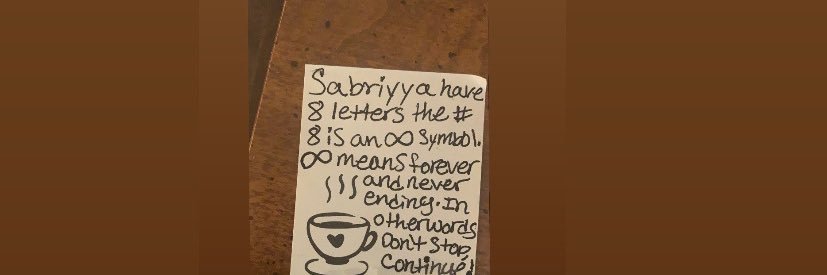 Sabriyya have
8 letters the #
8 is an ∞ symbol.
∞ means forever
and never
ending. In
other words
Don't Stop
Continue!